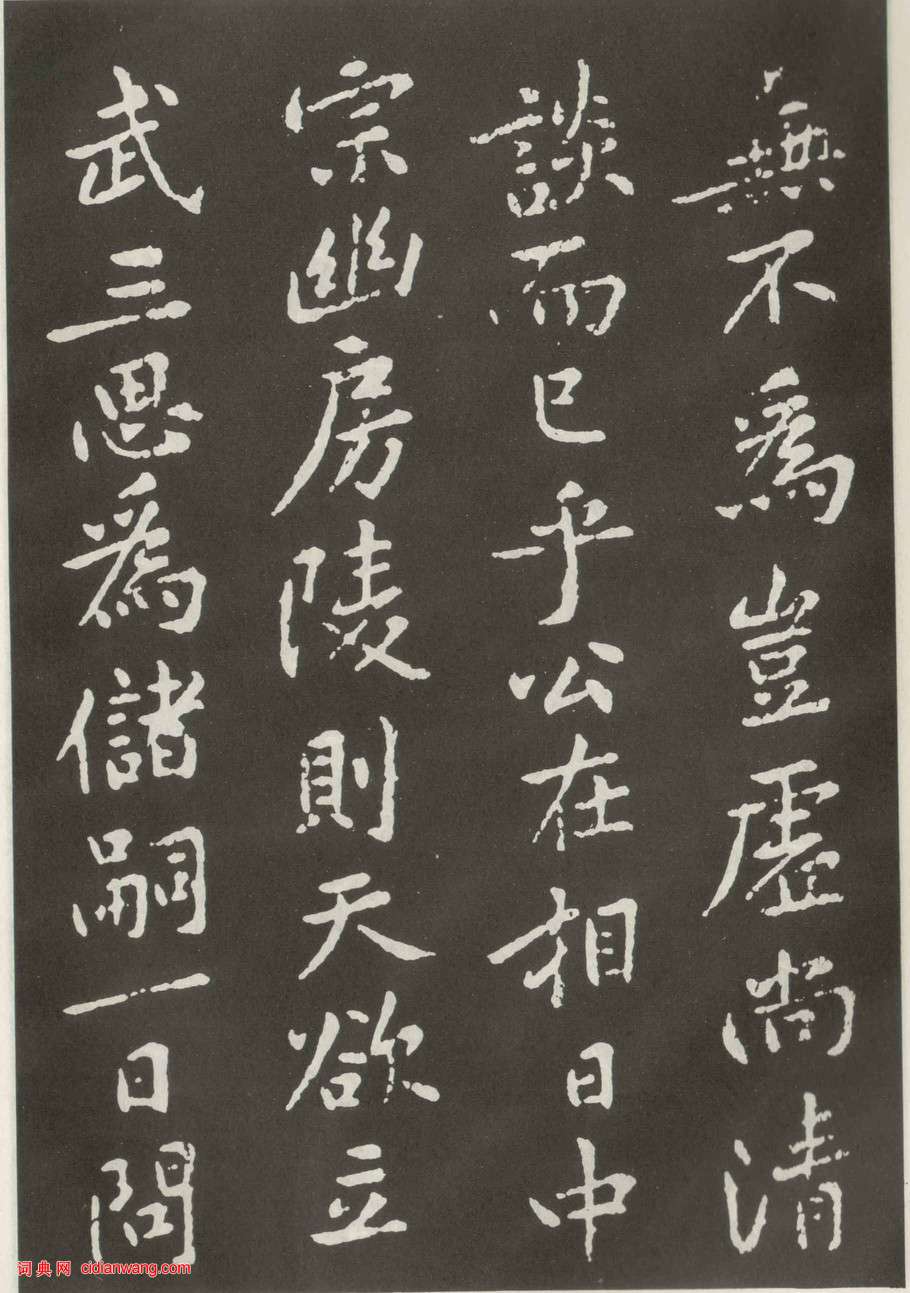 無不爲豈虛尚清
談而已乎公在相日中
宗幽房陵則天欲立
武三思爲儲嗣一日問
词典网 cidianwang.com